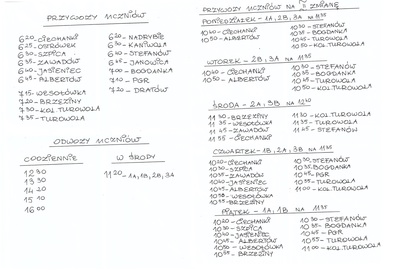 PRZYWOZY UCZNIÓW
6²⁰- CIECHANKI
6²⁵- OSTRÓWEK
6³⁰- SZPICA
6³⁵- ZAWADÓW
6⁴⁰- JASIENIEC
6⁴⁵- ALBERTÓW
7¹⁵- WESOŁÓWKA
7²⁰- BRZEZINY
7³⁰- KOL. TUROWOLA
7³⁵- TUROWOLA
6²⁰- NADRYBIE
6³⁰- KANIWOLA
6³⁰- STEFANÓW
6⁴⁵- JANOWICA
7⁰⁰- BOGDANKA
7¹⁰- PGR
7²⁰- DRATÓW
ODWOZY UCZNIÓW
CODZIENNIE
12³⁰
13³⁰
14²⁰
15¹⁰
16⁰⁰
W ŚRODY
11²⁰- 1A, 1B, 2B, 3A
PRZYWOZY UCZNIÓW NA II ZMIANĘ
PONIEDZIAŁEK - 1A, 2B, 3A NA 11³⁵
10⁴⁰- CIECHANKI
10⁵⁰- ALBERTÓW
10³⁰- STEFANÓW
10³⁵- BOGDANKA
10⁴⁵- TUROWOLA
10⁵⁰- KOL. TUROWOLA
WTOREK - 2B, 3A NA 11³⁵
10⁴⁰- CIECHANKI
10⁵⁰- ALBERTÓW
10³⁰- STEFANÓW
10³⁵- BOGDANKA
10⁴⁵- TUROWOLA
10⁵⁰- KOL. TUROWOLA
ŚRODA - 2A, 3B NA 12³⁰
11³⁰- BRZEZINY
11³⁵- WESOŁÓWKA
11⁴⁵- ZAWADÓW
11⁵⁵- CIECHANKI
11³⁰- KOL. TUROWOLA
11³⁵- TUROWOLA
11⁴⁵- STEFANÓW
CZWARTEK - 1B, 2A, 3B NA 11³⁵
10²⁰- CIECHANKI
10³⁰- SZPICA
10³⁵- ZAWADÓW
10⁴⁰- JASIENIEC
10⁴⁵- ALBERTÓW
10⁵⁰- WESOŁÓWKA
10⁵⁵- BRZEZINY
10³⁰- STEFANÓW
10³⁵- BOGDANKA
10⁴⁵- PGR
10⁵⁵- TUROWOLA
11⁰⁰- KOL. TUROWOLA
PIĄTEK - 1A, 1B NA 11³⁵
10²⁰- CIECHANKI
10³⁰- SZPICA
10⁴⁰- JASIENIEC
10⁴⁵- ALBERTÓW
10⁵⁰- WESOŁÓWKA
10⁵⁵- BRZEZINY
10³⁰- STEFANÓW
10³⁵- BOGDANKA
10⁴⁵- PGR
10⁵⁵- TUROWOLA
11⁰⁰- KOL. TUROWOLA